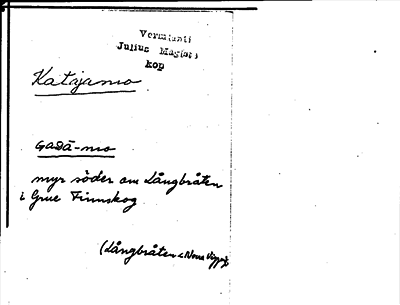 Vermlanti
Julius Mägiste
kop
Katajamo
Gadā-mo
myr söder om Långbråten
i Grue Finnskog
(Långbråten < Norra